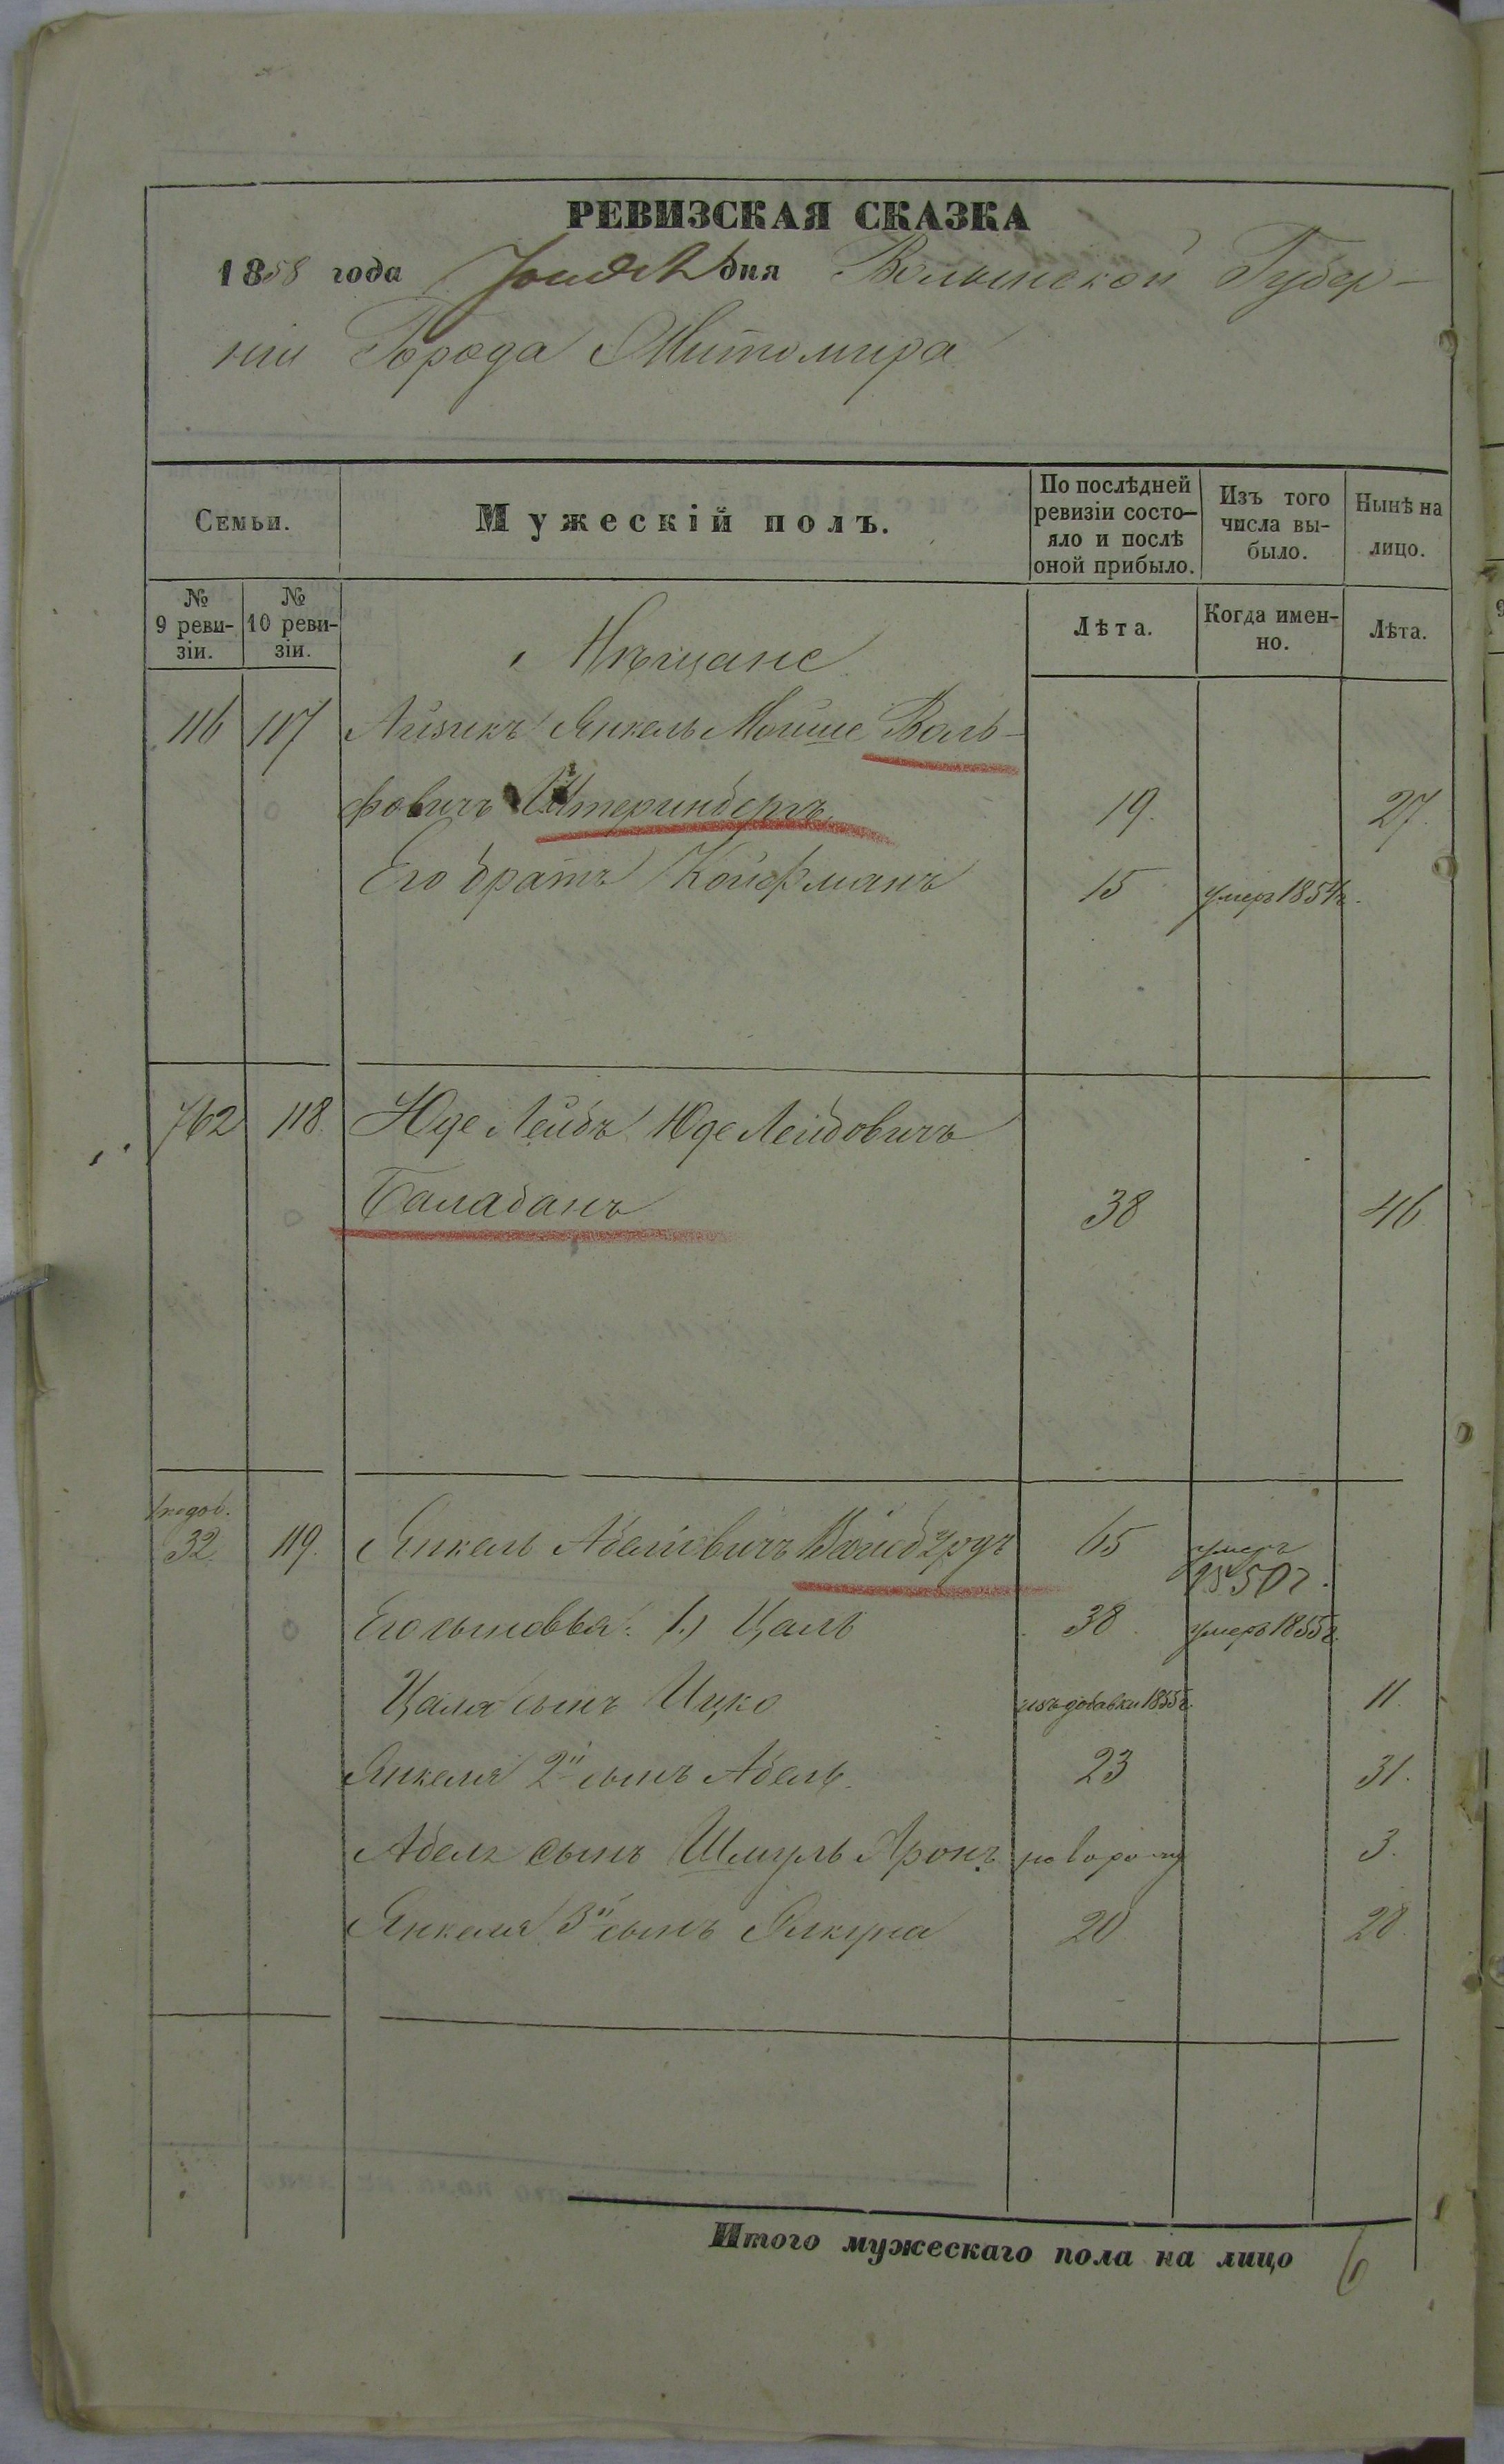 РЕВИЗСКАЯ СКАЗКА
1858 года дня Волынской Губер-
ніи Города Житомира
Семьи.
Мужескій полъ.
По послѣдней ревизіи состо-
яло и послѣ оной прибыло.
Изъ того числа вы-
было.
Нынѣ на лицо.
№ 9 реви-
зіи.
№ 10 реви-
зіи.
Лѣта.
Когда имен-
но.
Лѣта.
Мѣщане
116 117 Айзикъ Янкель Мойше Воль-
фовичъ Штеринбергъ 19. 27.
Его братъ Койфманъ 15 умеръ 1854г.
762 118. Юде Лейбъ Юде Лейбовичъ
Балабанъ 38 46
32. 119. Янкель Абелевичъ 65 умеръ
1850г.
Его сыновья: 1.) Цаль 38. умеръ 1855г.
Цаля сынъ Ицко изъ добавки 1855г. 11.
Янкеля 2й сынъ Абель. 23 31.
Абеля сынъ Шмуль Аронъ 3.
Янкеля 3й сынъ 20 28.
Итого мужескаго пола на лицо 6